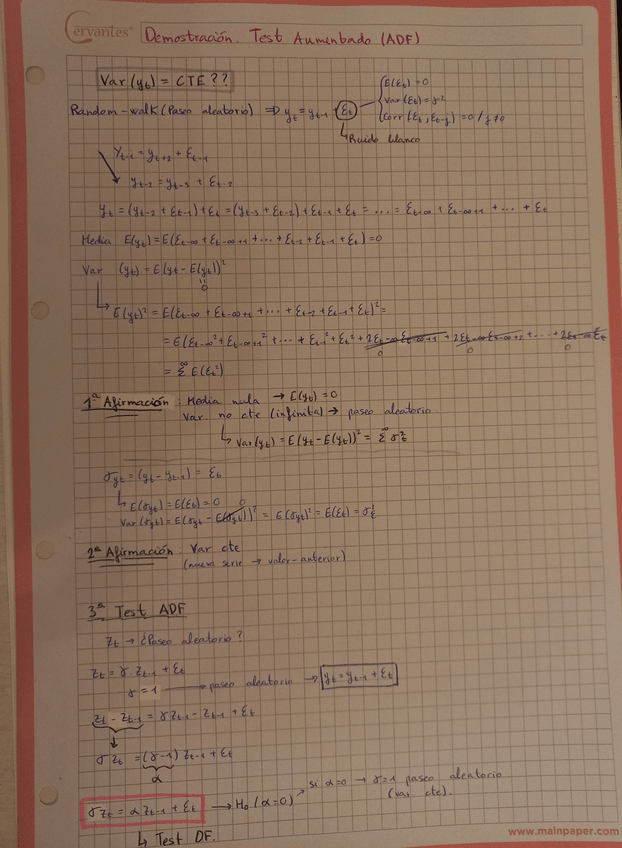 Cervantes®
Demostración. Test Aumentado (ADF)
Var (yt) = CTE ??
Random-walk (Paseo aleatorio) ⇒ yt = yt-1 + εt
E(εt) = 0
Var (εt) = σ²
Corr (εt, εt-j) = 0 / j≠0
↳ Ruido blanco
Yt-1 = yt+2 + εt-1
yt-2 = yt-3 + εt-2
yt = (yt-2 + εt-1) + εt = (yt-3 + εt-2) + εt-1 + εt = ... = εt-∞ + εt-∞+1 + ... + εt
Media E(yt) = E(εt-∞ + εt-∞+1 + ... + εt-2 + εt-1 + εt) = 0
Var (yt) = E(yt - E(yt))²
0
↳ E(yt)² = E(εt-∞ + εt-∞+1 + ... + εt-2 + εt-1 + εt)² =
= E(εt-∞² + εt-∞+1² + ... + εt-1² + εt² + 2εt-∞ εt-∞+1 + 2εt-∞ εt-∞+2 + ... + 2εt-∞ εt
0 0 0
= Σ∞ E(εt²)
1ª Afirmación : Media nula → E(yt) = 0
Var. no cte (infinita) → paseo aleatorio
↳ Var(yt) = E(yt - E(yt))² = Σ∞ σt²
σyt = (yt - yt-1) = εt
↳ E(σyt) = E(εt) = 0
Var (σyt) = E(σyt - E(σyt))² = E(σyt)² = E(εt) = σε²
0
2ª Afirmación : Var cte
(nueva serie → valor-anterior)
3ª Test ADF
Zt → ¿Paseo aleatorio?
Zt = γ Zt-1 + εt
γ = 1 → paseo aleatorio → yt = yt-1 + εt
Zt - Zt-1 = γ Zt-1 - Zt-1 + εt
σ Zt = (γ-1) Zt-1 + εt
α
σ Zt = α Zt-1 + εt → H0 (α=0) → si α=0 → γ=1 paseo aleatorio
(var cte).
↳ Test DF.
www.mainpaper.com